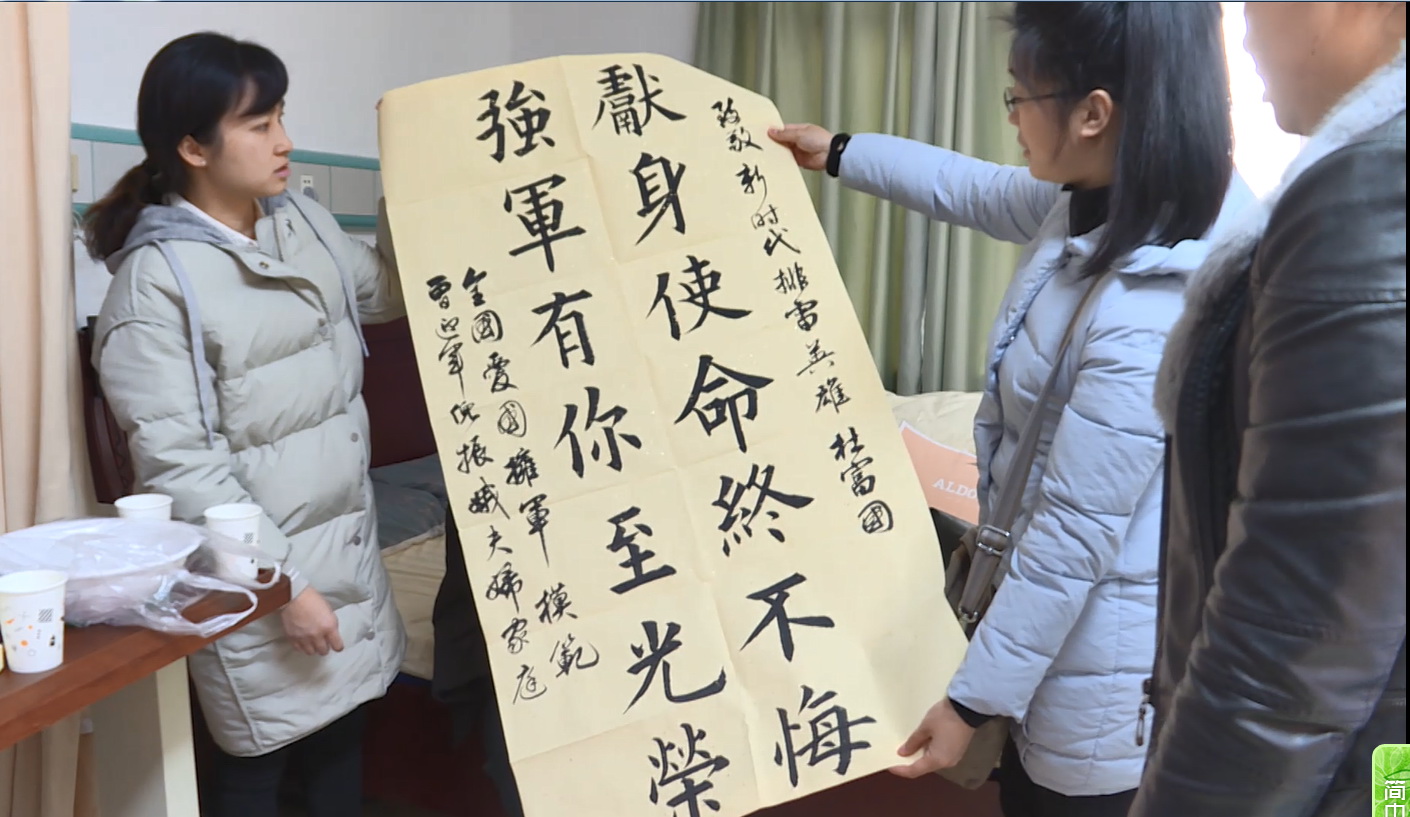 致敬新时代排雷英雄杜富國
獻身使命終不悔
強軍有你至光榮
全國愛國擁軍模範
曾迎軍倪振娥夫婦家庭
ALDO
简